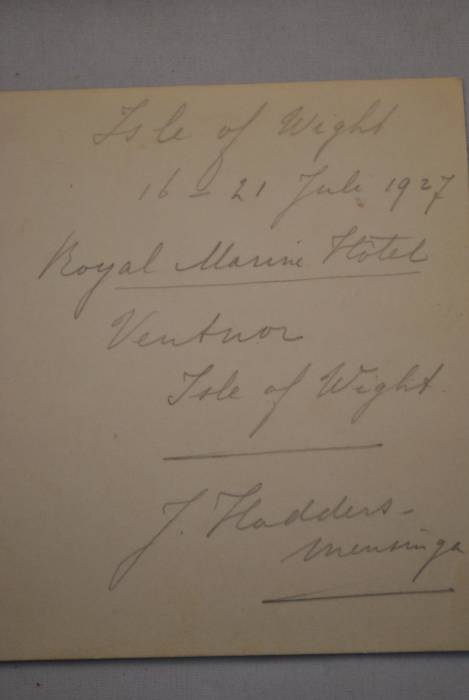 Isle of Wight
16 - 21 Juli 1927
Royal Marine Hôtel
Ventnor
Isle of Wight
J. Hadders-
Mensinga